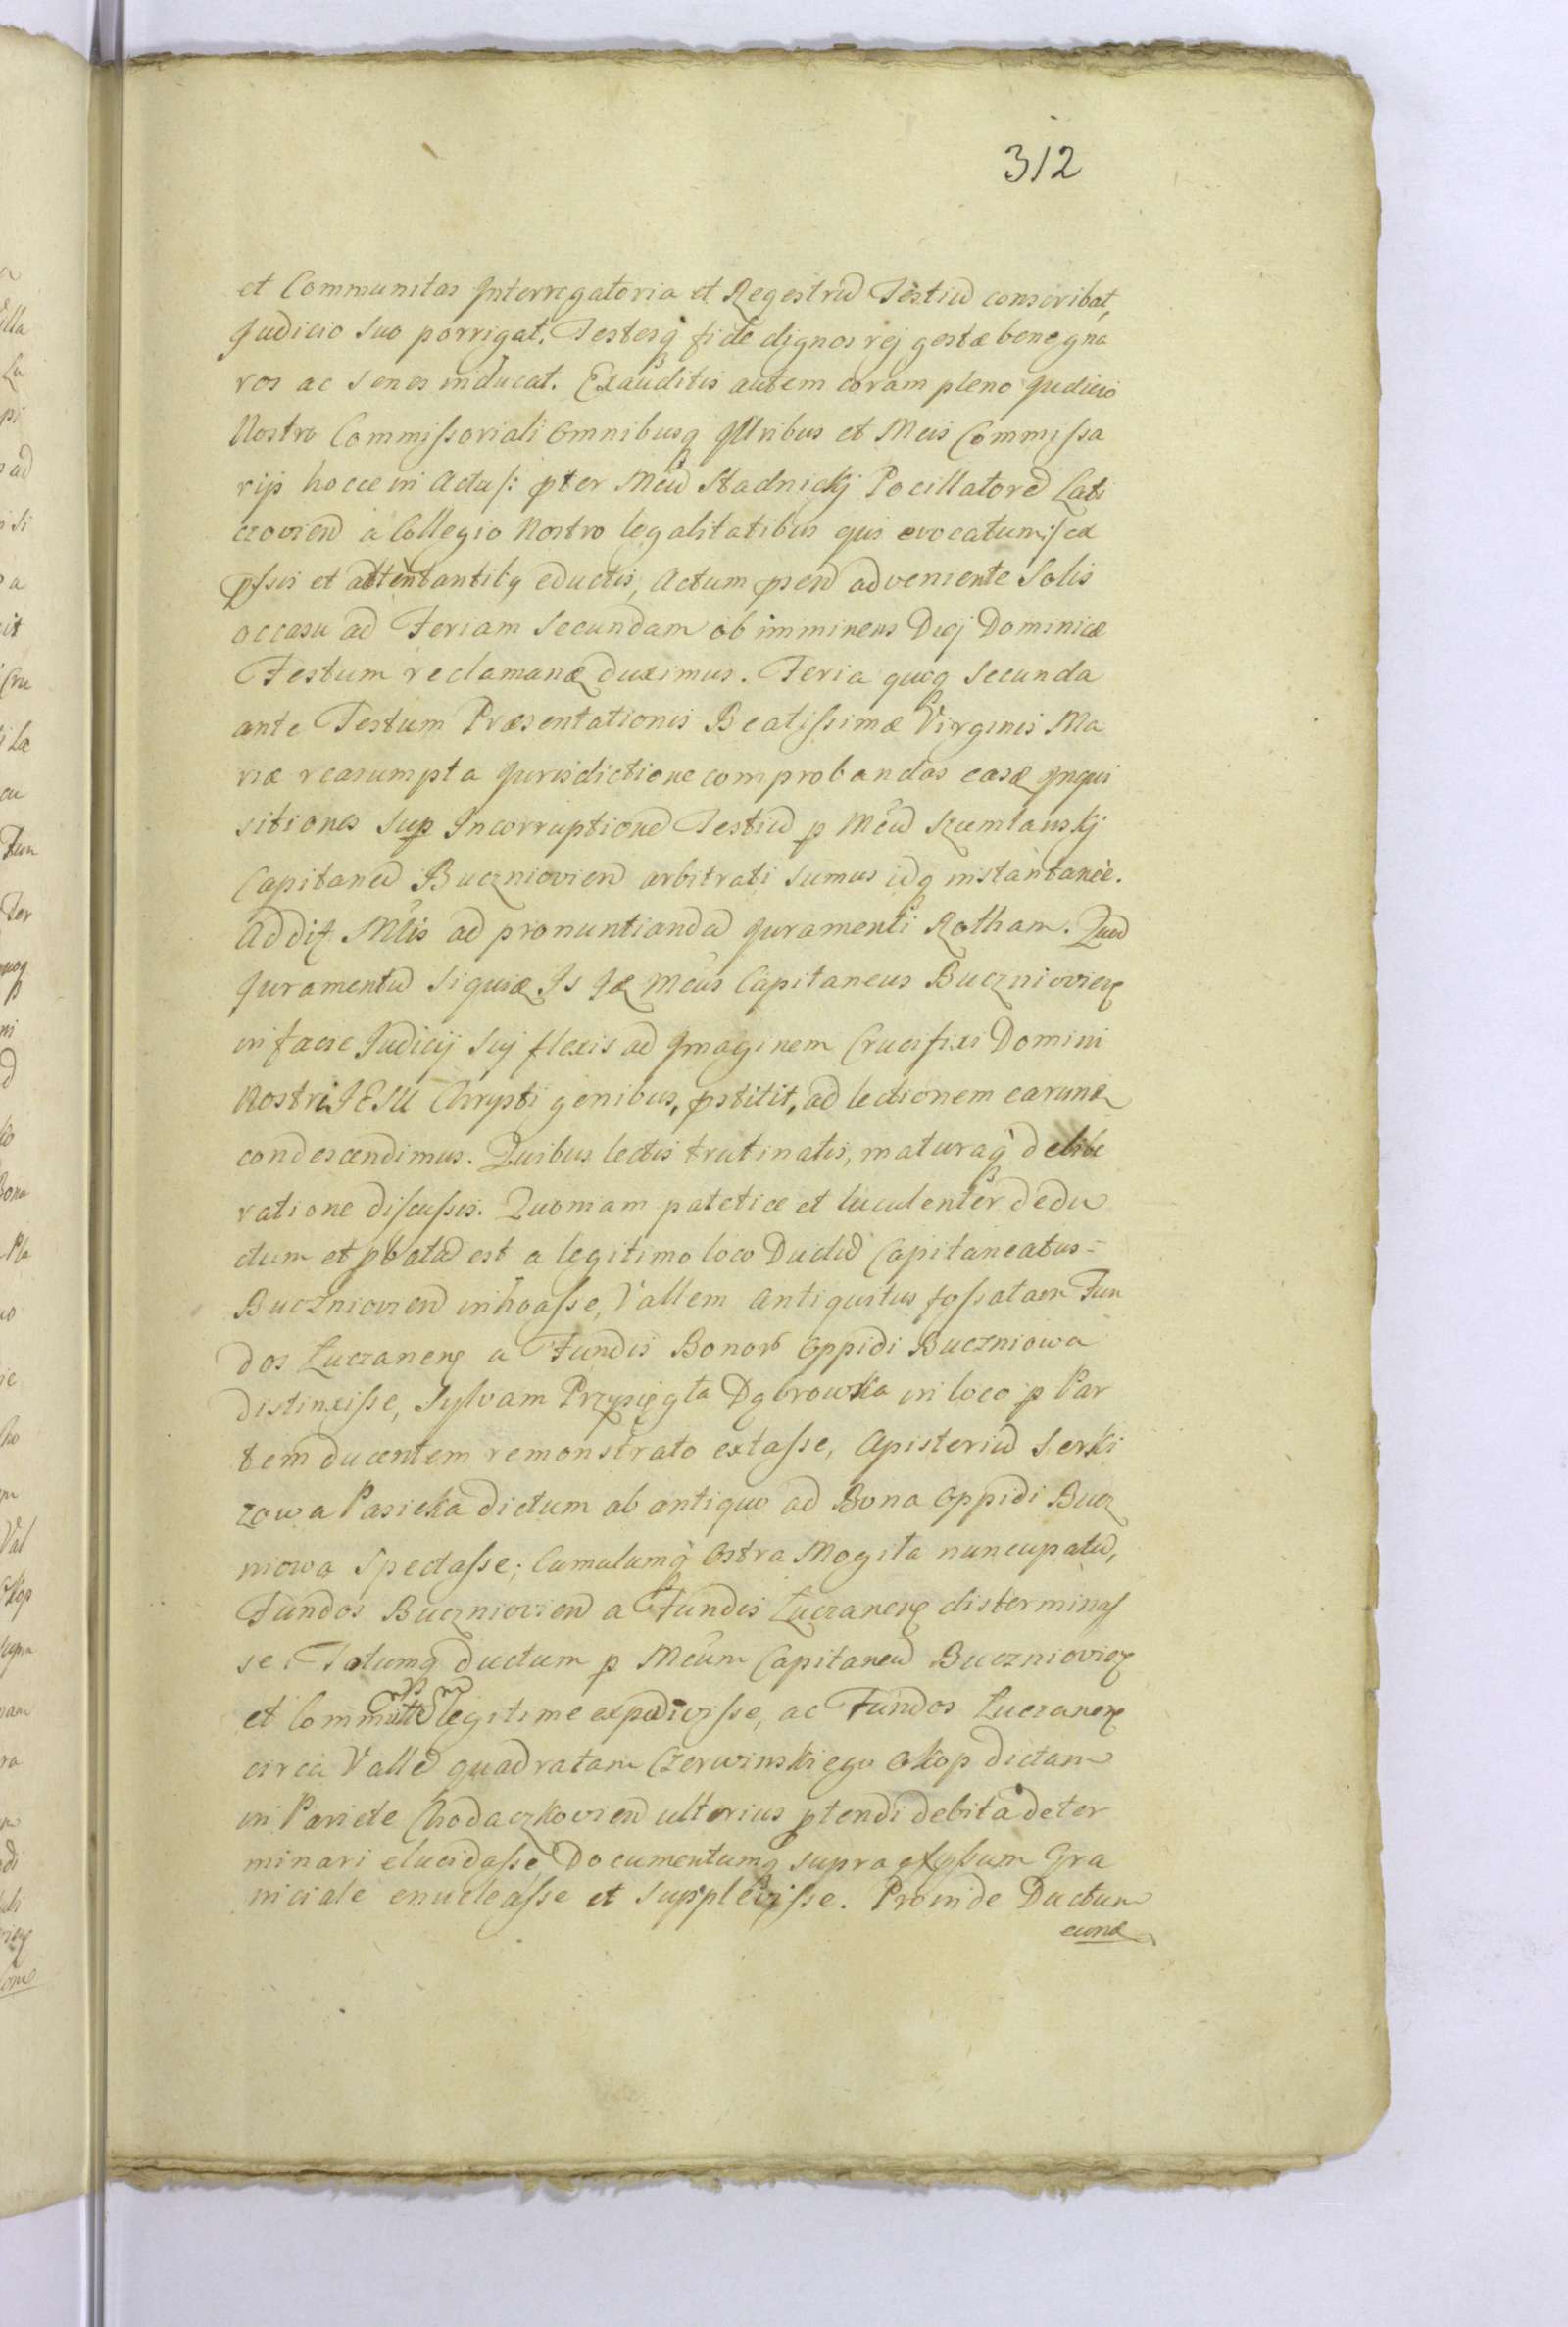 312
et Communitas Interrogatoria et Regestrū Testiū conscribat,
Judicio suo porrigat, Testesq̨ fide dignos rej gestæ bene gna
ros ac senes inducat. Exauditis autem coram pleno Judicio
Nostro Commissoriali omnibusq̨ Illribus et Mcis Commissa
rijs hocce in Actu /: p̄ter Mcū Stadnickj Pocillatorē Lati
czovien̄ a Collegio Nostro legalitatibus ejus evocatum :/ ex
p̄ssis et attentantibq̨ eductis, Actum p̄sen̄ adveniente Solis
occasu ad Feriam Secundam ob imminens Diej Dominicæ
Festum reclaman̄ duximus. Feria quoq̨ Secunda
ante Festum Præsentationis Beatissimæ Virginis Ma
riæ reasumpta Jurisdictione comprobandas easd̄ Inqui
sitiones sup̱ Incorruptionē Testiū p̱ Mcū Szumlanskj
Capitaneū Buczniovien̄ arbitrati sumus idq̨ instantaneè.
Addit Mtis ad pronuntiandā Juramenti Rotham. Quod
Juramentū siquid̄ Is Id̄ Mcus Capitaneus Buczniovien̄
in facie Judicij Suj flexis ad Imaginem Crucifixi Domini
Nostri JESU Chrysti genibus, p̄stitit, ad lectionem earund̄
condescendimus. Quibus lectis trutinatis, maturaq̨ delibe
ratione discussis. Quoniam pateticè et luculenter dedu
ctum et p̱batū est a legitimo loco Ductū Capitaneatus
Buczniovien̄ inchoasse, Vallem antiquitus fossatam Fun
dos Łuczanen̄ a Fundis Bonor̄ Oppidi Buczniowa
distinxisse, Sylvam Przysięgła Dąbrowka in loco p̱ Par
tem ducentem remonstrato extasse, Apisteriū Serki
zowa Pasieka dictum ab antiquo ad Bona Oppidi Bucz
niowa Spectasse; Cumulumq̨ Ostra Mogiła nuncupatū,
Fundos Buczniovien̄ a Fundis Łuczanen̄ disterminas
se. Totumq̨ ductum p̱ Mcum Capitaneū Buczniovien̄
et Commttē legitime expedivisse, ac Fundos Łuczanen̄
circa Vallē quadratam Czerwinskiego Okop dictam
in Pariete Chodaczkovien̄ ulterius p̱tendi debitā deter
minari elucidasse, Documentumq̨ supra exp̄ssum Gra
niciale enucleasse et supplevisse. Proinde Ductum
eund̄